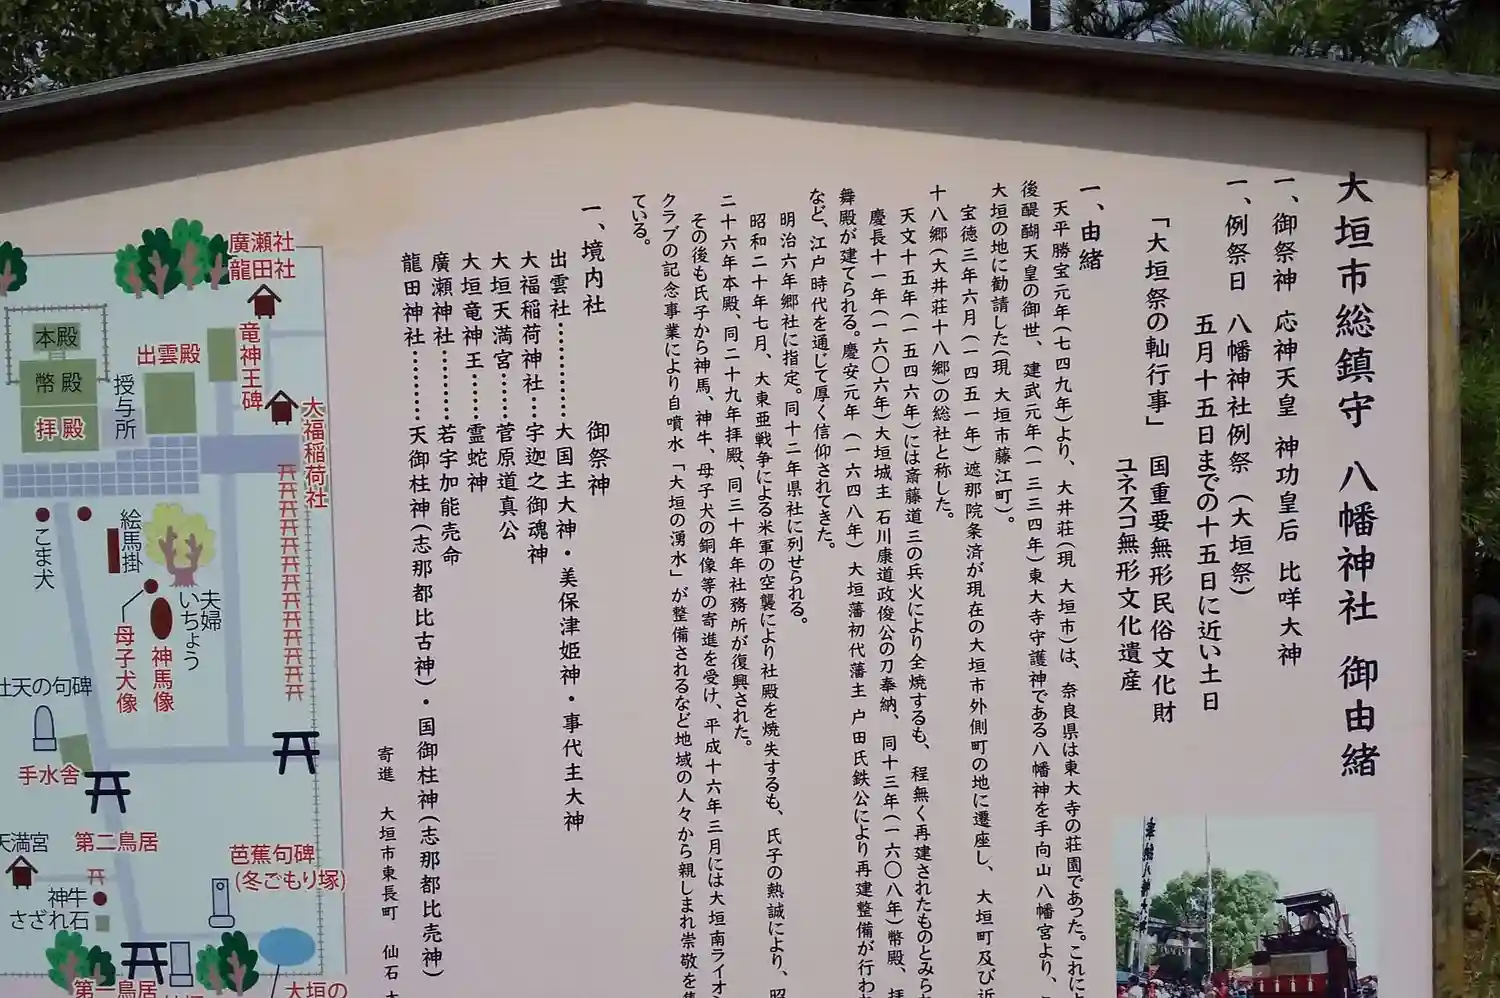 大垣市総鎮守 八幡神社 御由緒
一、御祭神 応神天皇 神功皇后 比咩大神
一、例祭日 八幡神社例祭（大垣祭）
五月十五日までの十五日に近い土日
「大垣祭の軕行事」 国重要無形民俗文化財
ユネスコ無形文化遺産
一、由緒
天平勝宝元年(七四九年)より、大井荘(現 大垣市)は、奈良県は東大寺の荘園であった。これに
後醍醐天皇の御世、建武元年(一三三四年)東大寺守護神である八幡神を手向山八幡宮より、
大垣の地に勧請した(現 大垣市藤江町)。
宝徳三年六月(一四五一年)遮那院条済が現在の大垣市外側町の地に遷座し、大垣町及び近
十八郷(大井荘十八郷)の総社と称した。
天文十五年(一五四六年)には斎藤道三の兵火により全焼するも、程無く再建されたものとみら
慶長十一年(一六〇六年)大垣城主 石川康道政俊公の刀奉納、同十三年(一六〇八年)幣殿、拝
舞殿が建てられる。慶安元年(一六四八年)大垣藩初代藩主 戸田氏鉄公により再建整備が行わ
など、江戸時代を通じて厚く信仰されてきた。
明治六年郷社に指定。同十二年県社に列せられる。
昭和二十年七月、大東亜戦争による米軍の空襲により社殿を焼失するも、氏子の熱誠により、昭
二十六年本殿、同二十九年拝殿、同三十年社務所が復興された。
その後も氏子から神馬、神牛、母子犬の銅像等の寄進を受け、平成十六年三月には大垣南ライオン
クラブの記念事業により自噴水「大垣の湧水」が整備されるなど地域の人々から親しまれ崇敬を集
ている。
一、境内社 御祭神
出雲社…………大国主大神・美保津姫神・事代主大神
大福稲荷神社…宇迦之御魂神
大垣天満宮……菅原道真公
大垣竜神王……霊蛇神
廣瀬神社………若宇加能売命
龍田神社………天御柱神(志那都比古神)・国御柱神(志那都比売神)
寄進 大垣市東長町 仙石
廣瀬社
龍田社
竜神王碑
本殿
幣殿
拝殿
出雲殿
授与所
大福稲荷社
こま犬
絵馬掛
夫婦
いちょう
母子犬像
神馬像
社天の句碑
手水舎
第二鳥居
天満宮
芭蕉句碑
(冬ごもり塚)
神牛
さざれ石
第一鳥居
大垣の